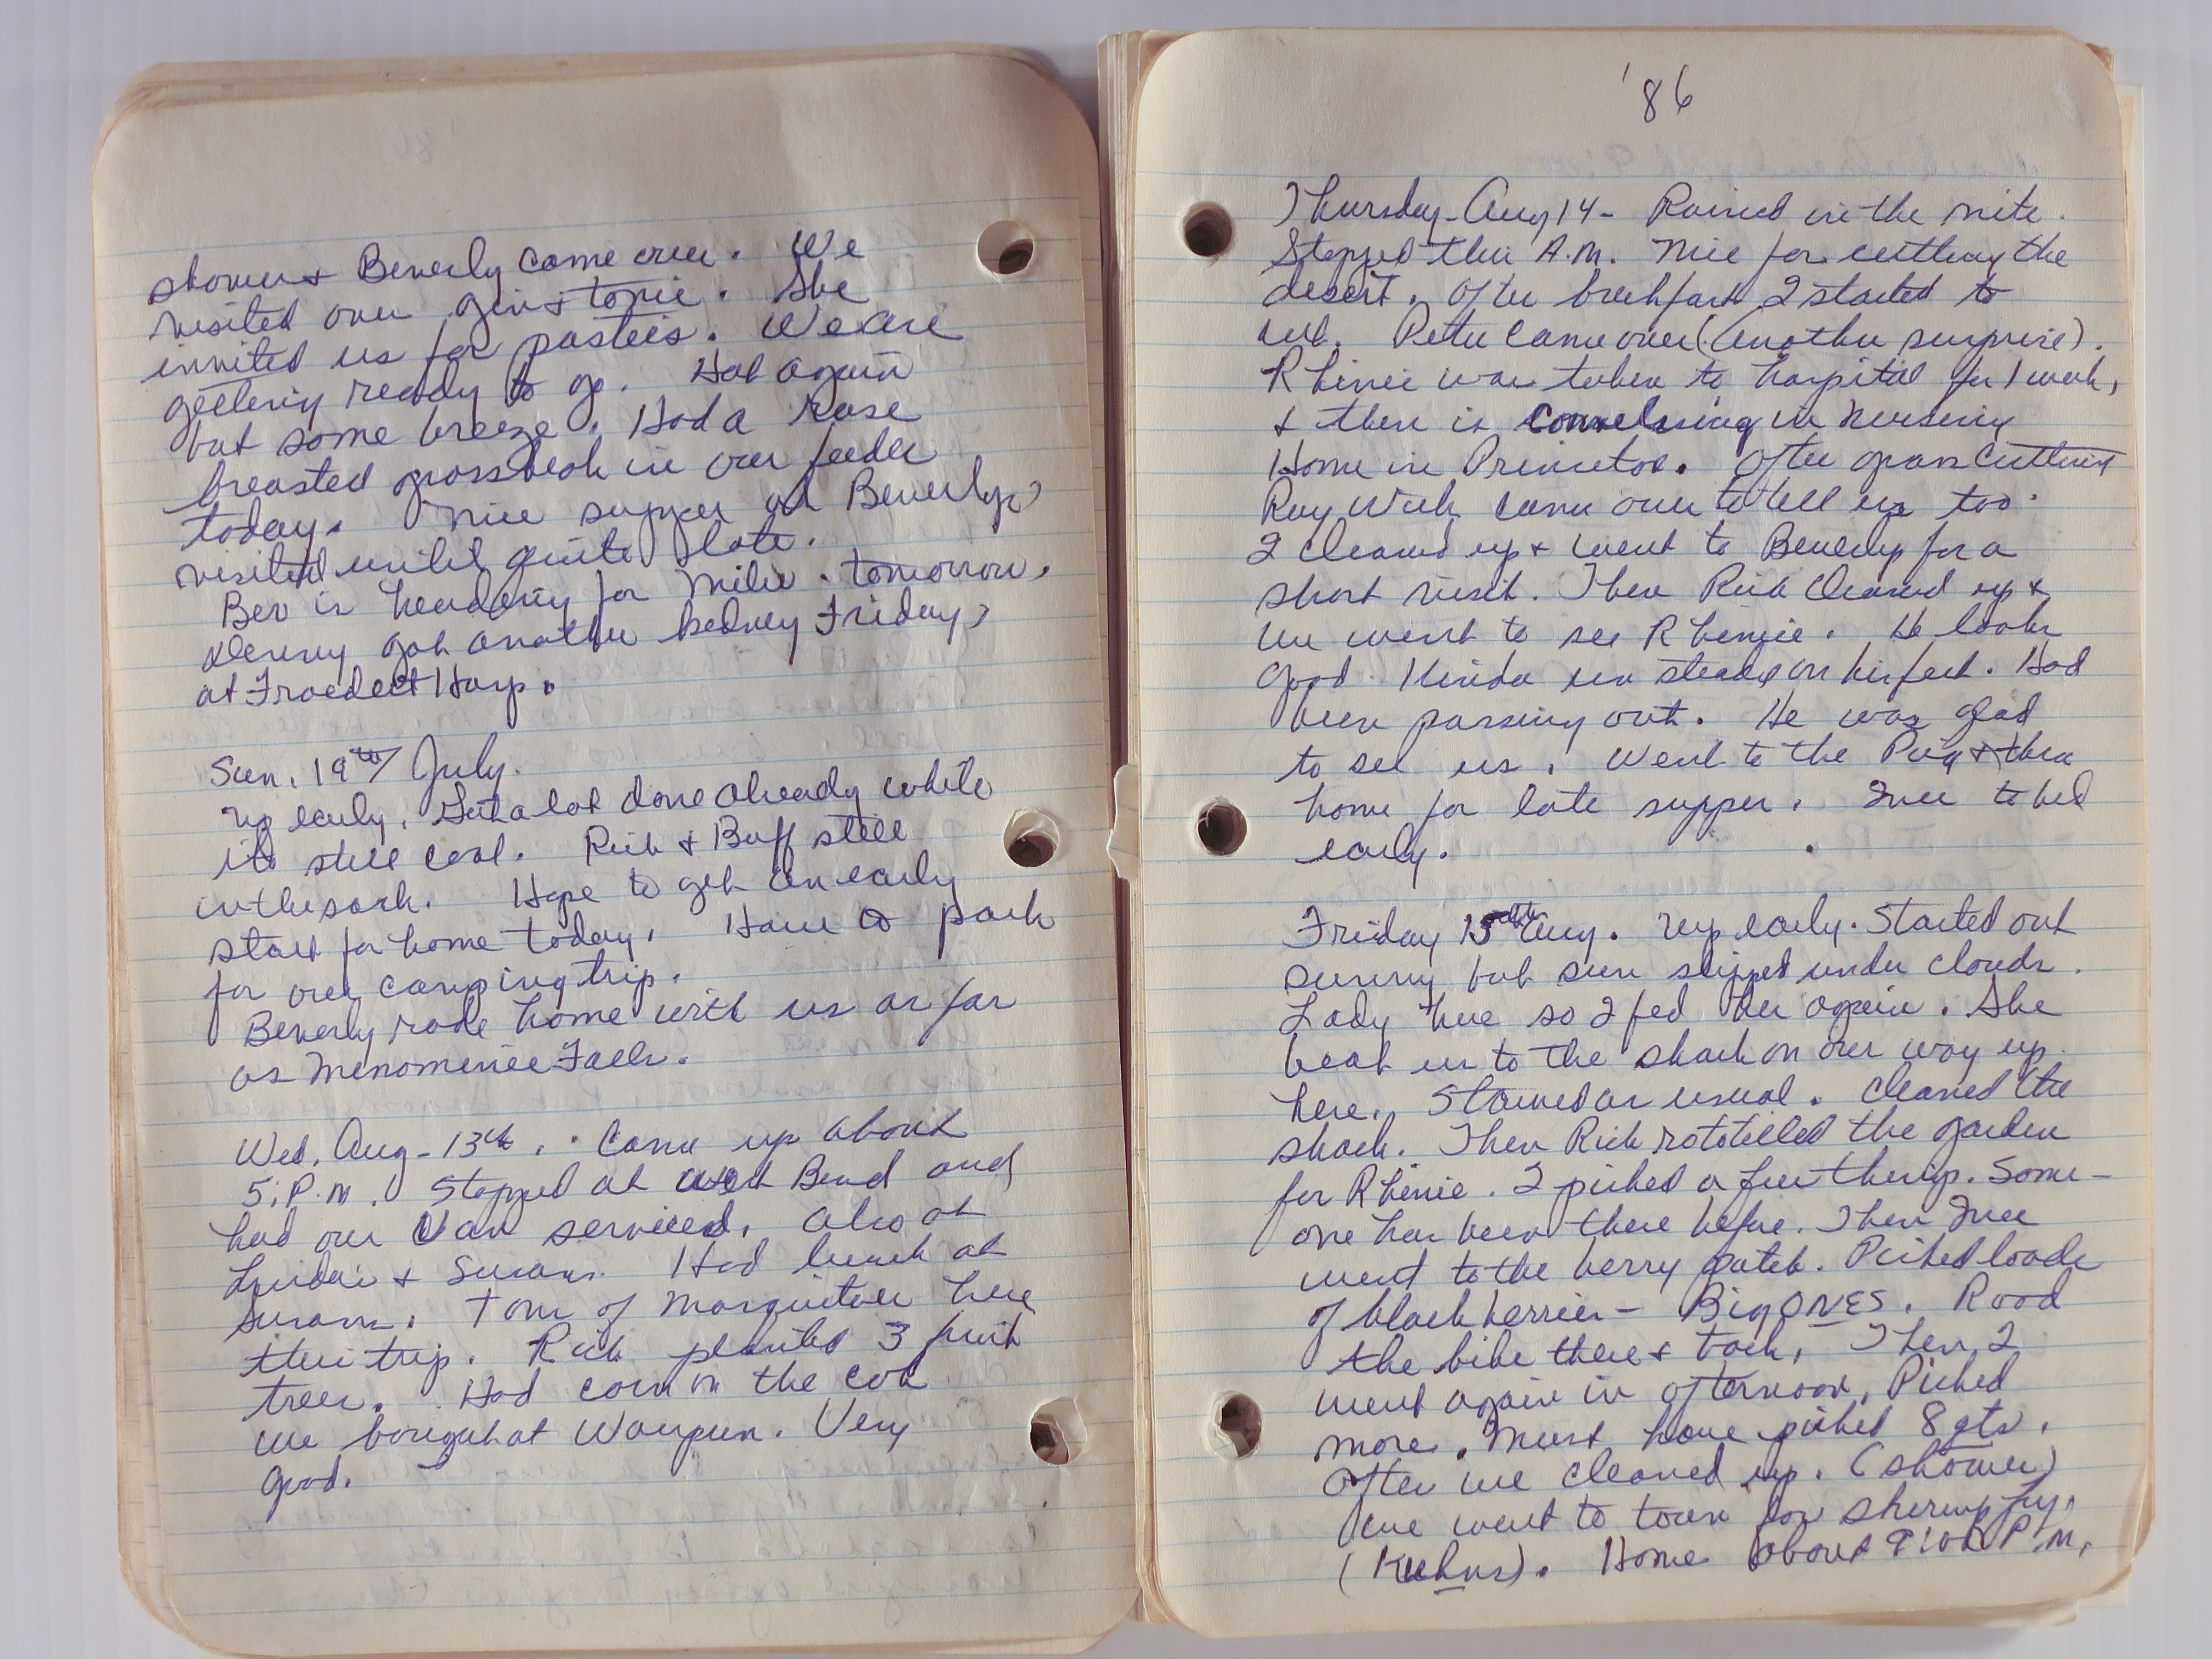 shower & Beverly came over. We
visited over gin & tonic. She
invited us for pasties. We are
getting ready to go. Hot again
but some breeze. Had a rose
breasted grossbeak in our feeder
today. Nice supper at Beverlys
visited until quite late.
Bev is heading for Milw. tomorrow.
Denny got another kedney Friday,
at Froedect Hosp.
Sun. 19th July.
up early. Got a lot done already while
its still cool. Rick & Buff still
in the sack. Hope to get an early
start for home today. Have to pack
for our camping trip.
Beverly rode home with us as far
as Menomenee Falls.
Wed. Aug - 13th. Came up about
5:P.M. Stopped at West Bend and
had our Van serviced. Also at
Linda's & Susans. Had lunch at
Susans. Tons of Mosquitoes here
this trip. Rick planted 3 fruit
trees. Had corn on the cob
we bought at Waupun. Very
good.
'86
Thursday - Aug 14 - Rained in the nite.
Stopped this A.M. Nice for cutting the
desert. After breakfast I started to
cut. Pete came over (Another surprise).
Rhinie was taken to hospital for 1 week,
& then is in Nursing
Home in Princeton. After grass cutting
Ray Wick came over to tell us too.
I cleaned up & went to Beverlys for a
short visit. Then Rick cleaned up &
we went to see Rhinie. He looks
good. Kinda un steady on his feet. Had
been passing out. He was glad
to see us. Went to the Pig & then
home for late supper. to bed
early.
Friday 15th Aug. Up early. Started out
sunny but sun slipped under clouds.
Lady here so I fed her again. She
beat us to the shack on our way up
here. Starved as usual. Cleaned the
shack. Then Rick rototilled the garden
for Rhinie. I picked a few things. Some-
one has been there before. Then
went to the berry patch. Picked loads
of blackberries - Big ONES. Rood
the bike there & back. Then I
went again in afternoon. Picked
more. Must have picked 8 qts.
After we cleaned up. (shower)
we went to town for shrimp fry.
(Kuhns). Home about P.M.